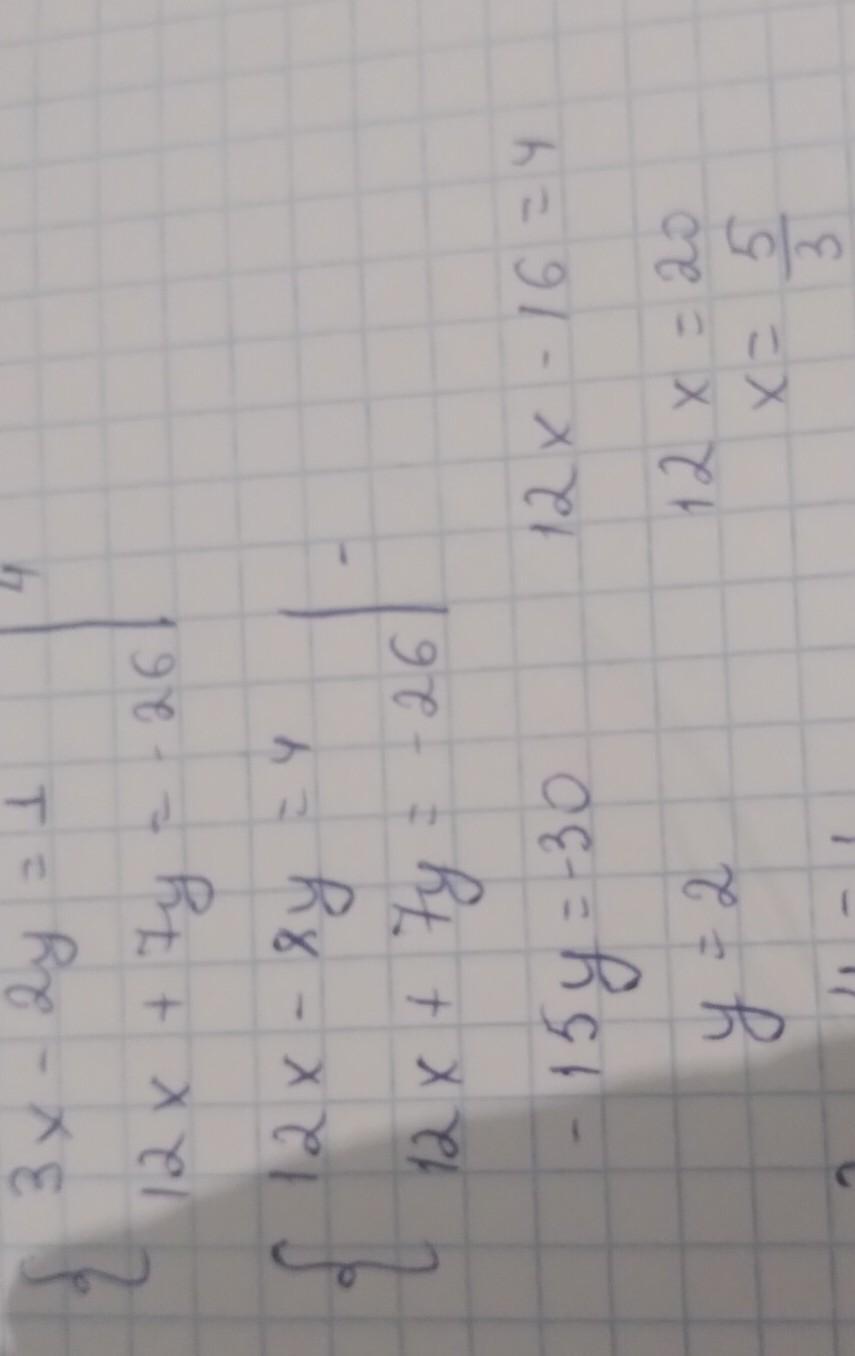 3x - 2y = 1 | 4
12x + 7y = -26
12x - 8y = 4 | -
12x + 7y = -26
-15y = -30
12x - 16 = 4
y = 2
12x = 20
x = 5/3